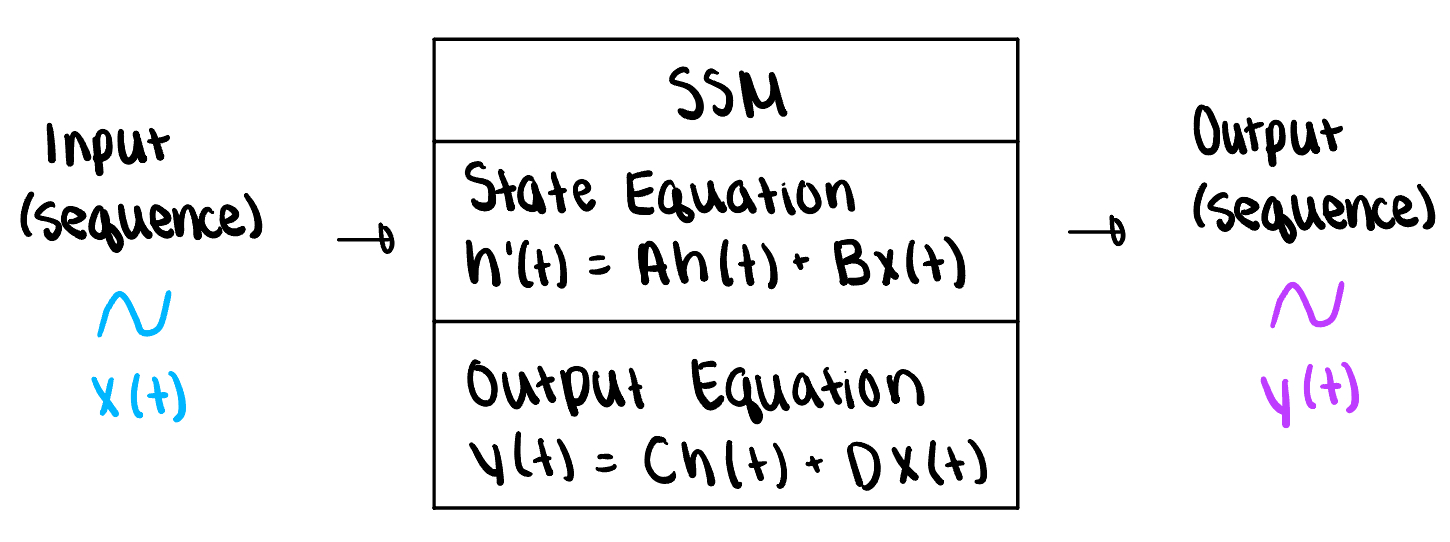 Input
(sequence)
x(t)
SSM
State Equation
h'(t) = Ah(t) + Bx(t)
Output Equation
y(t) = Ch(t) + Dx(t)
Output
(sequence)
y(t)